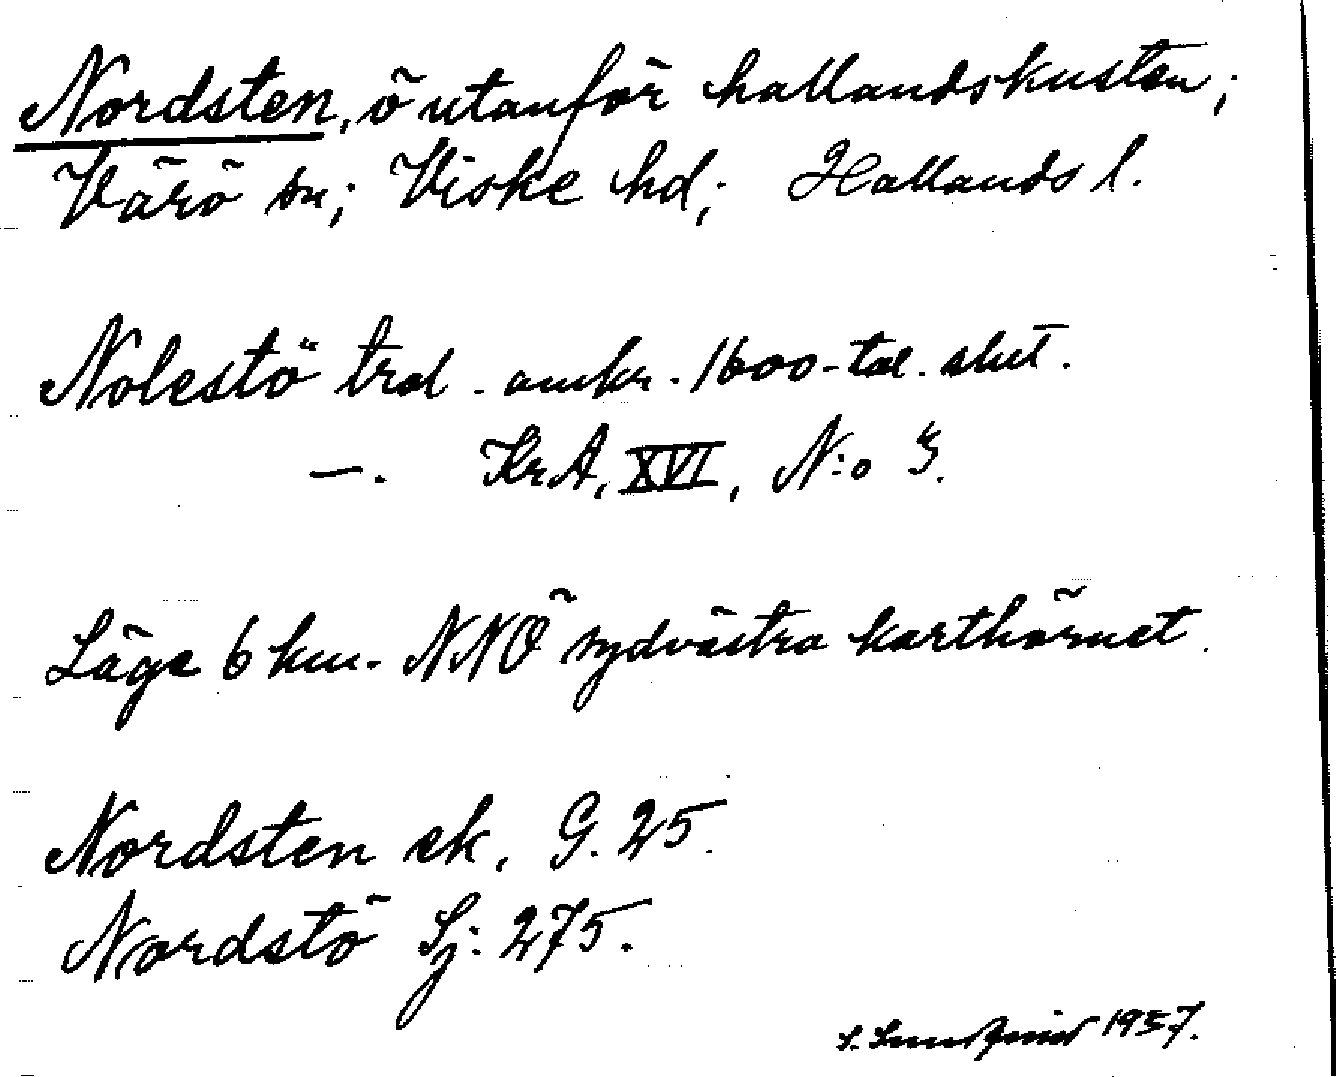 Nordsten, ö utanför hallandskusten;
Värö sn; Viske hd; Hallands l.
Nolestö trol. omkr. 1600-tal. slut.
—. KrA, XVI, N:o 3.
Läge 6 km. NNÖ sydvästra karthörnet.
Nordsten ek. G. 25.
Nordstö Sj: 275.
S. 1957.